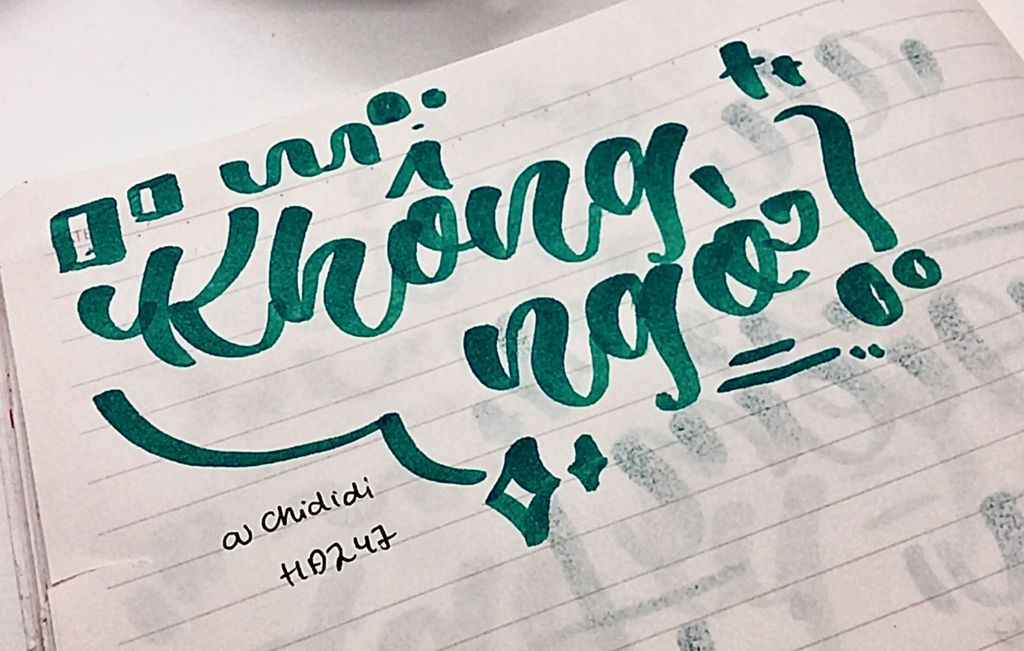 Không
ngờ
a chididi
HĐ247